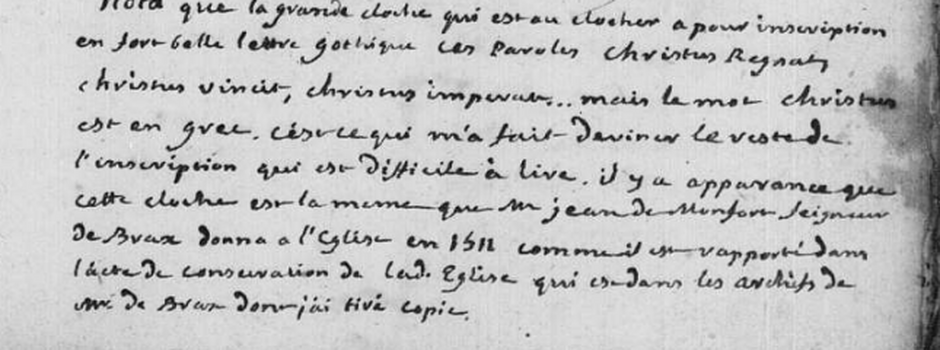 Nota que la grande cloche qui est au clocher a pour inscription
en fort belle lettre gothique ces paroles Christus Regnat,
christus vincit, christus imperat... mais le mot christus
est en grec. c'est ce qui m'a fait deviner le reste de
l'inscription qui est difficile à lire. il y a apparance que
cette cloche est la meme que Mr jean de Monfort seigneur
de Brax donna a l'Eglise en 1511 comme il est rapporté dans
l'acte de consecration de lad. Eglise qui est dans les archifs de
Mr. de Brax dont j'ai tiré copie.